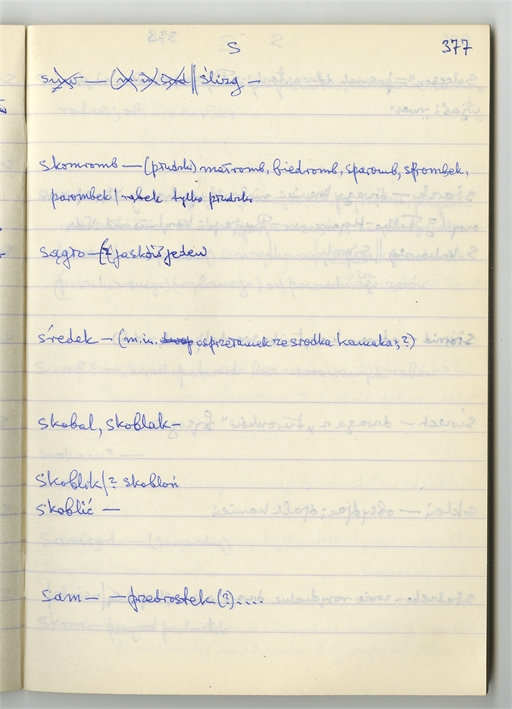 S
377
— || ślizg —
skomromb — (przydrki) matromb, biedromb, sparomb, sfrombek,
parombek / rąbek tylko
sągło — (? jaskółw jeden
średek — (m.in. ze srodka kamuka; ?)
skobal, skoblak —
skoblik / ? skobloń
skoblić —
sam — — przedrostek (?)....